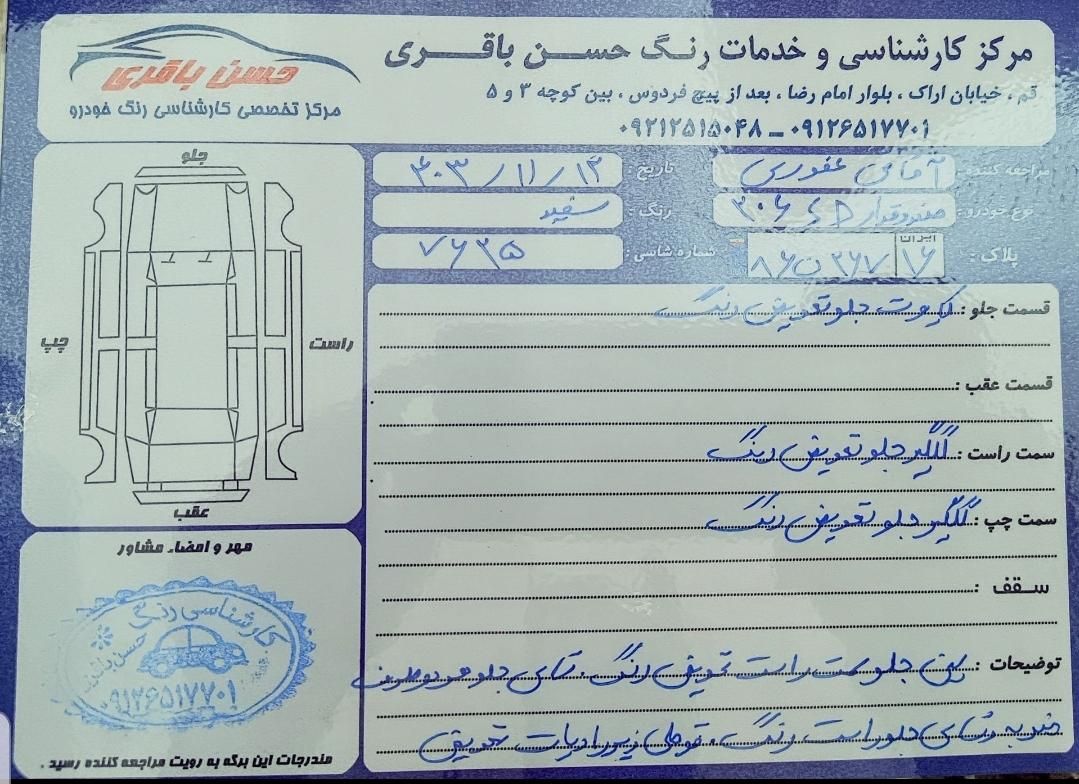 مرکز کارشناسی و خدمات رنگ حسن باقری
قم ، خیابان اراک ، بلوار امام رضا ، بعد از پیچ فردوس ، بین کوچه ۳ و ۵
۰۹۱۲۶۵۱۷۷۰۱ ـ ۰۹۲۱۲۵۱۵۰۴۸
حسن باقری
مرکز تخصصی کارشناسی رنگ خودرو
مراجعه کننده : آقای غفوری
تاریخ : ۴۰۳/۱۱/۱۳
نوع خودرو : صندوقدار ۲۰۶ SD
رنگ : سفید
پلاک : ایران ۱۶ ۲۶۷ ن ۸۶
شماره شاسی : ۷۶۳۵
جلو
چپ
راست
عقب
قسمت جلو : کاپوت جلو تعویض رنگ
قسمت عقب :
سمت راست : گلگیر جلو تعویض رنگ
سمت چپ : گلگیر جلو تعویض رنگ
سقف :
توضیحات : سینی جلو سمت راست تعویض رنگ ، شاسی جلو هر دو طرف
ضربه و شاسی جلو راست رنگ ، قوطی زیر رادیات تعویض
مهر و امضاء مشاور
کارشناسی رنگ
حسن باقری
۰۹۱۲۶۵۱۷۷۰۱
مندرجات این برگه به رویت مراجعه کننده رسید .